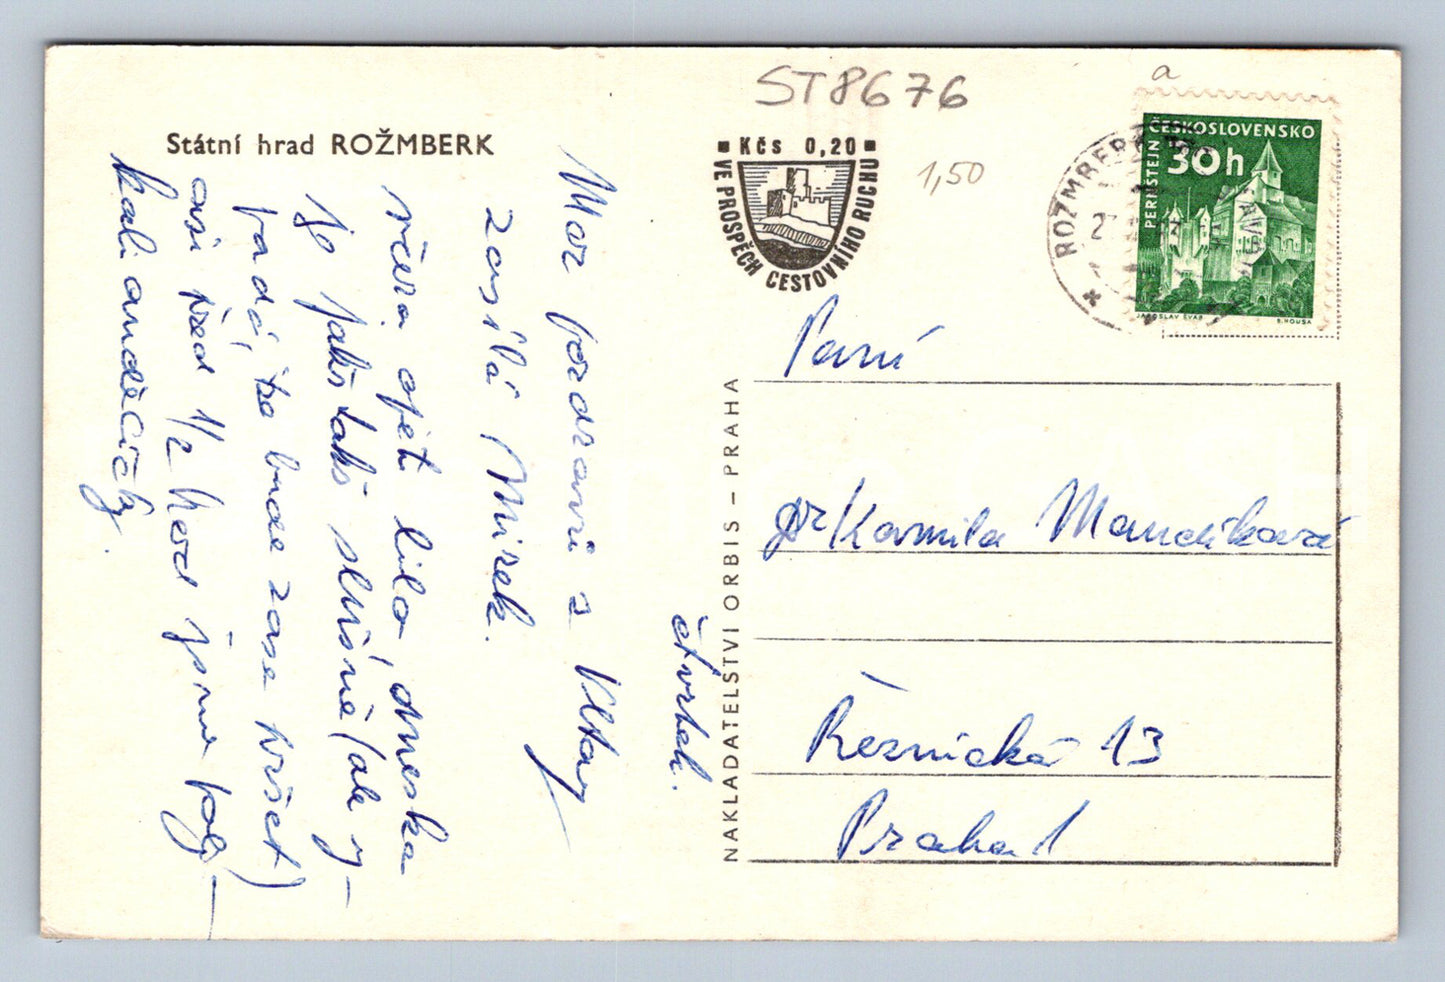 ST8676
a
Státní hrad ROŽMBERK
Kčs 0,20
VE PROSPĚCH CESTOVNÍHO RUCHU
1,50
ROŽMBERK
VLTAV
ČESKOSLOVENSKO
30h
PERNŠTEJN
JAROSLAV ŠVÁB
B. HOUSA
čtvrtek.
Moc pozdravů z Vltavy
zasílá Mirek.
včera opět lilo, dneska
je jakž takž slušně (ale vy-
padá, že bude zase pršet)
asi před 1/2 hod jsme poly-
kali
NAKLADATELSTVÍ ORBIS – PRAHA
Paní
Kamila Mandíková
Řeznická 13
Praha 1